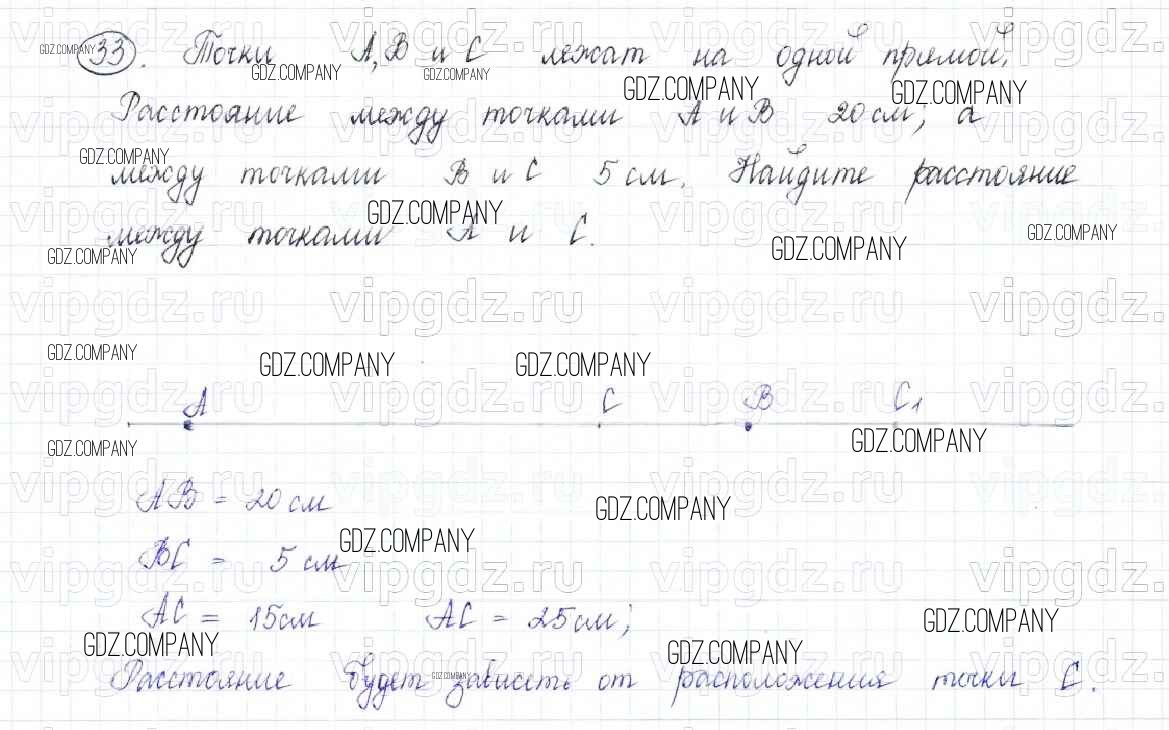 33. Точки A, B и C лежат на одной прямой.
Расстояние между точками A и B 20 см, а
между точками B и C 5 см. Найдите расстояние
между точками A и C.
A C B C1
AB = 20 см
BC = 5 см
AC = 15 см AC = 25 см;
Расстояние будет зависеть от расположения точки C.
GDZ.COMPANY
vipgdz.ru